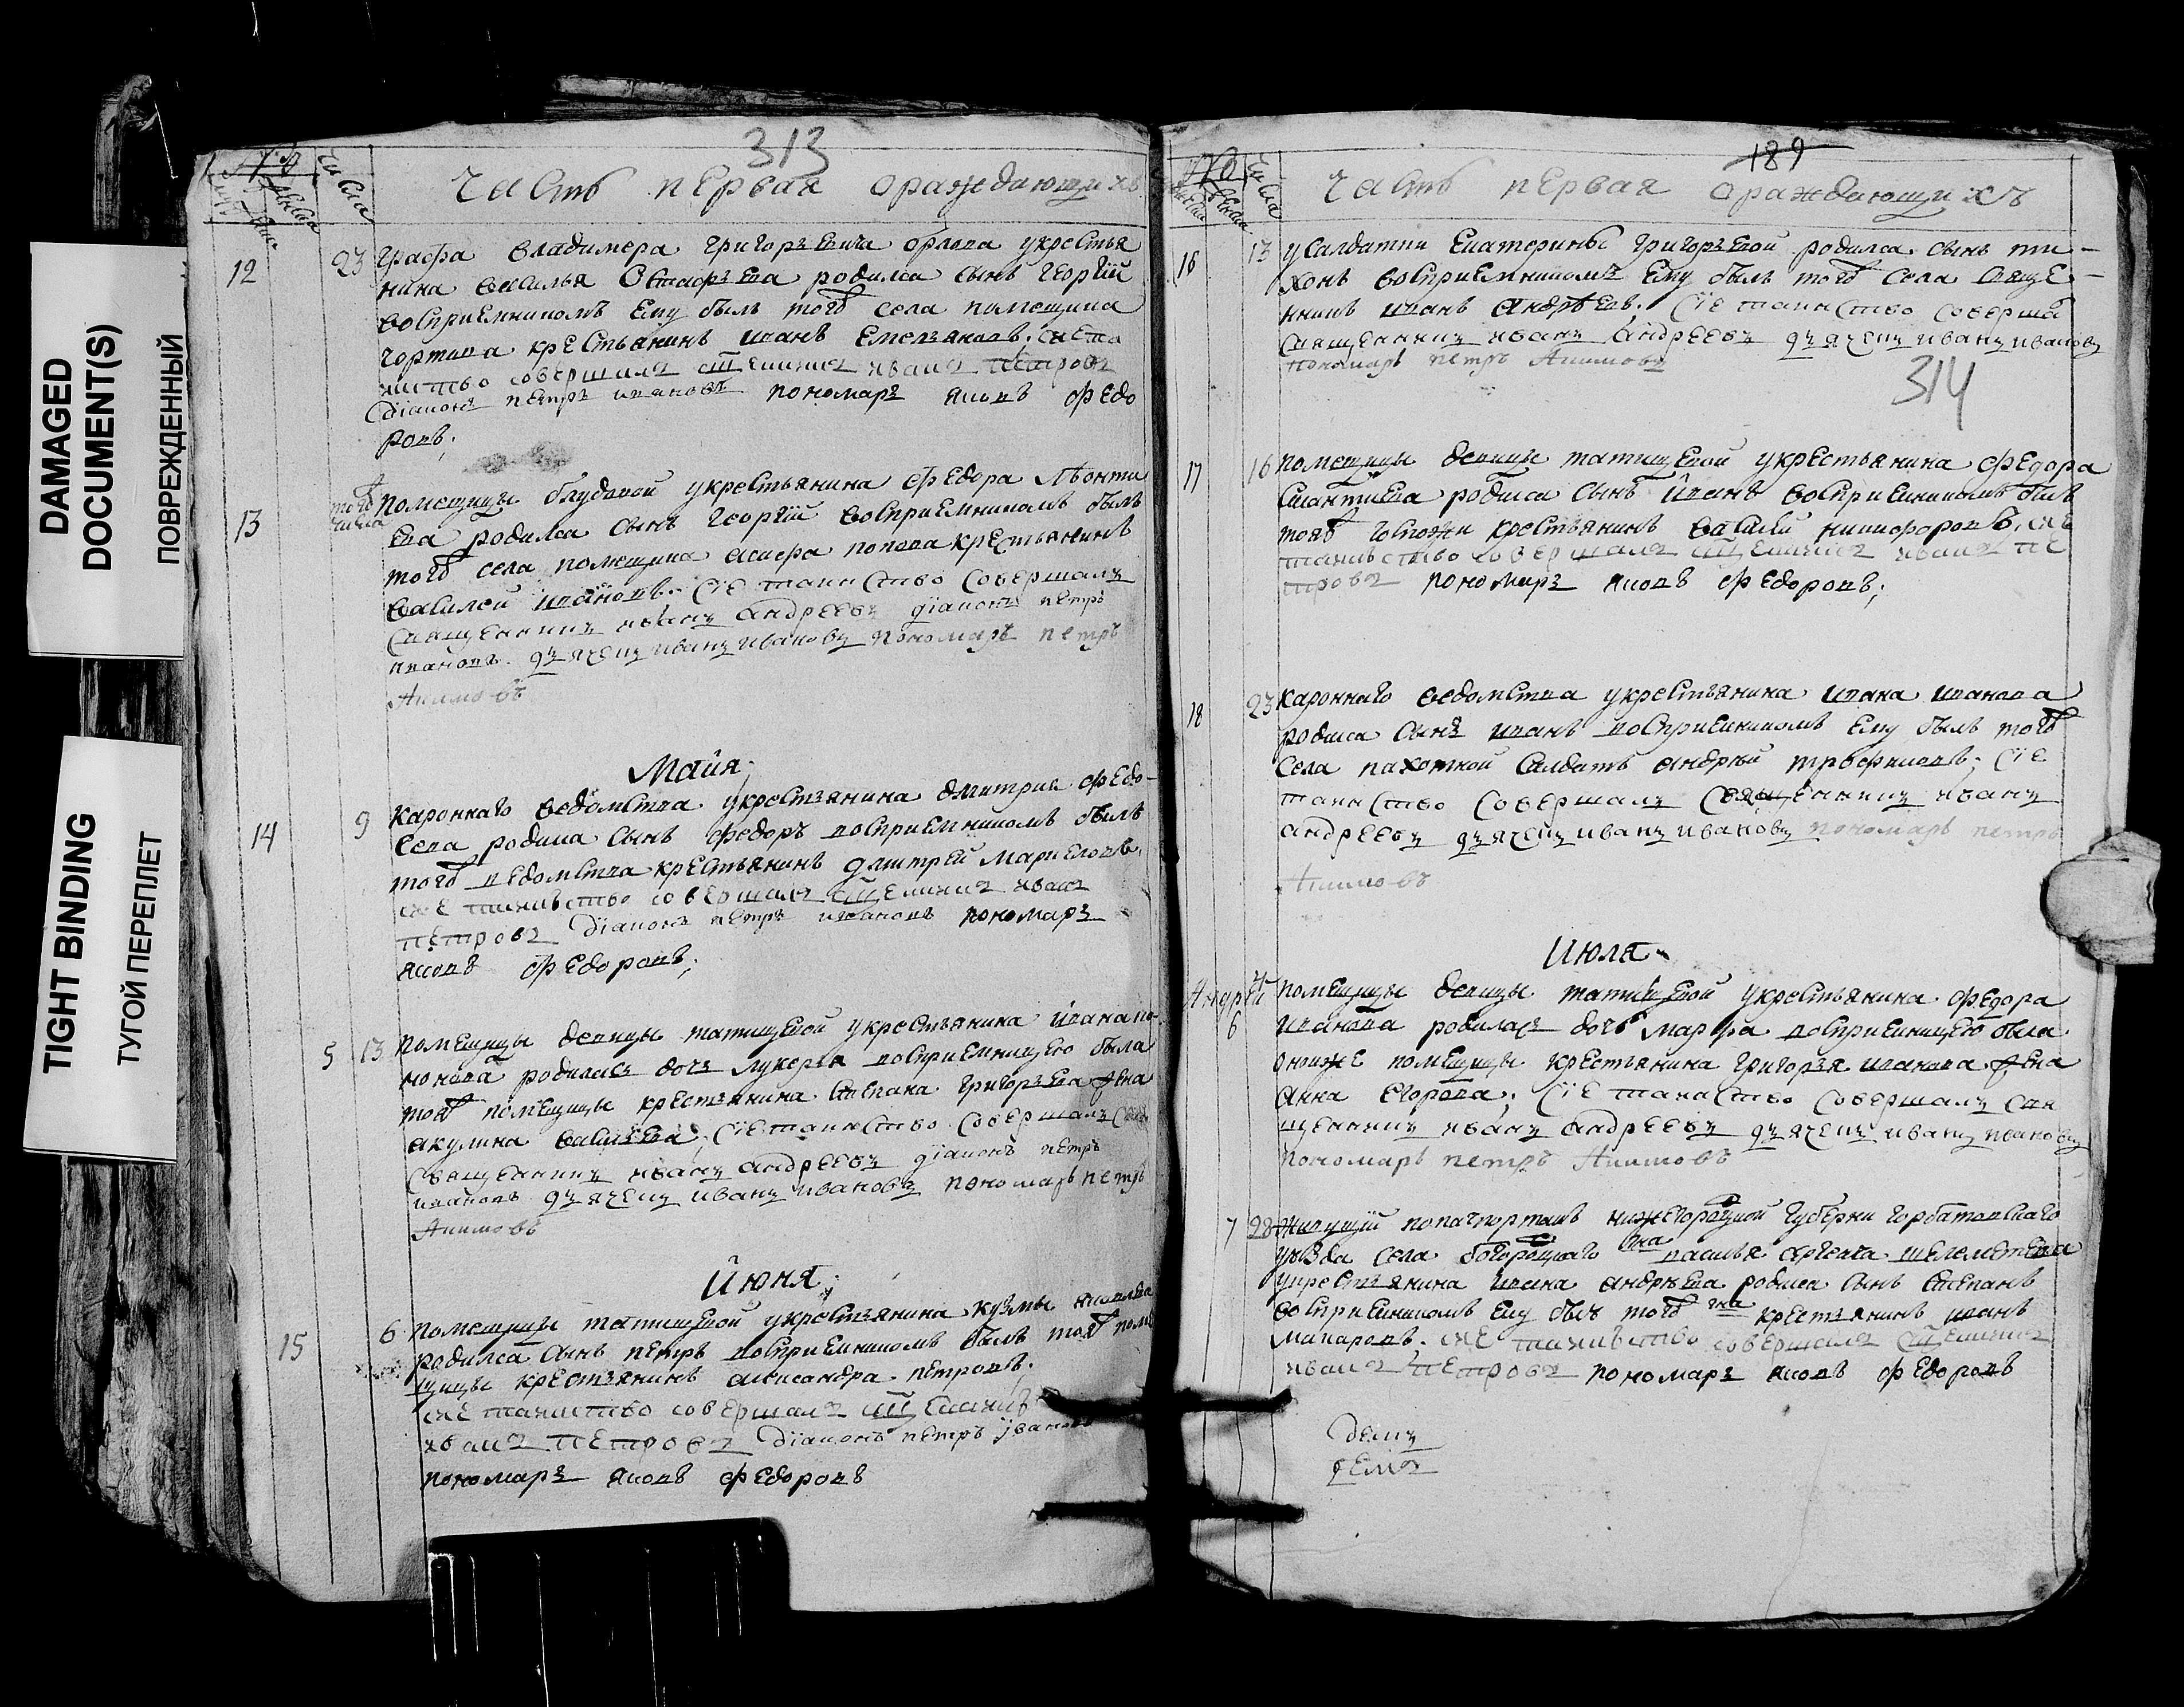 DAMAGED
DOCUMENT(S)
ПОВРЕЖДЕННЫЙ
TIGHT BINDING
ТУГОЙ ПЕРЕПЛЕТ
313
числа
часть первая ораждающихъ
12
23
графа владимера григорьевича орлова укрестья
нина василья родился сынъ георгій
восприемникомъ ему былъ того села помещика
крестьянинъ иванъ емельяновъ; сие та
инство совершалъ иванъ петровъ
діаконъ петръ ивановъ пономарь яковъ федо
ровъ;
13
того числа
помещицы блудовой укрестьянина федора леонти
ева родился сынъ георгій восприемникомъ былъ
того села помещика попова крестьянинъ
василей ивановъ. сіе таинство совершалъ
священникъ иванъ андреевъ діаконъ петръ
ивановъ. дьячекъ иванъ ивановъ пономарь петръ
Акимовъ
Майя.
14
9
каронного ведомства укрестьянина дмитрия федо-
сева родился сынъ федоръ восприемникомъ былъ
того ведомства крестьянинъ дмитрей маркеловъ.
сие таинство совершалъ иванъ
петровъ діаконъ петръ ивановъ пономарь
яковъ федоровъ;
5
13
помещицы девицы татищевой укрестьянина ивана па-
монова родилась дочь лукерья восприемницею была
тояж помещицы крестьянина степана григорьева жена
акулина васильева; сіе таинство совершалъ
священникъ иванъ андреевъ діаконъ петръ
ивановъ дьячекъ иванъ ивановъ пономарь петръ
Акимовъ
Июня;
15
6
помещицы татищевой укрестьянина кузмы
родился сынъ петръ восприемникомъ былъ тояж поме
щицы крестьянинъ александра петровъ;
сие таинство совершалъ
иванъ петровъ діаконъ петръ ивановъ
пономарь яковъ федоровъ
189
числа
часть первая ораждающихъ
16
13
усалдатки екатерины григорьевой родился сынъ ти-
хонъ восприемникомъ ему былъ того села свяще-
нникъ иванъ андреевъ; сіе таинство соверша
священникъ иванъ андреевъ дьячекъ иванъ ивановъ
пономарь петръ Акимовъ
314
17
16
помещицы девицы татищевой укрестьянина федора
родился сынъ иванъ восприемникомъ былъ
тояж госпожи крестьянинъ василей никифоровъ. сие
таинство совершалъ иванъ пе
тровъ пономарь яковъ федоровъ;
18
23
каронного ведомства укрестьянина ивана иванова
родился сынъ иванъ восприемникомъ ему былъ того
села пахотной салдатъ андрей трофимовъ; сіе
таинство совершалъ священникъ иванъ
андреевъ дьячекъ иванъ ивановъ пономарь петръ
Акимовъ
Июля
Андрей
4
6
помещицы девицы татищевой укрестьянина федора
иванова родилась дочь марфа восприемницею была
оныяже помещицы крестьянина григорья иванова жена
анна егорова; сіе таинство совершалъ свя
щенникъ иванъ андреевъ дьячекъ иванъ ивановъ
пономарь петръ Акимовъ
7
28
живущій попачпортамъ нижегородцкой губерни горбатовскаго
уезда села богороцкаго гна василья сергеича шелеметева
укрестьянина ивана андреева родился сынъ степанъ
восприемникомъ ему былъ того гна крестьянинъ иванъ
макаровъ. сие таинство совершалъ
иванъ петровъ пономарь яковъ федоровъ